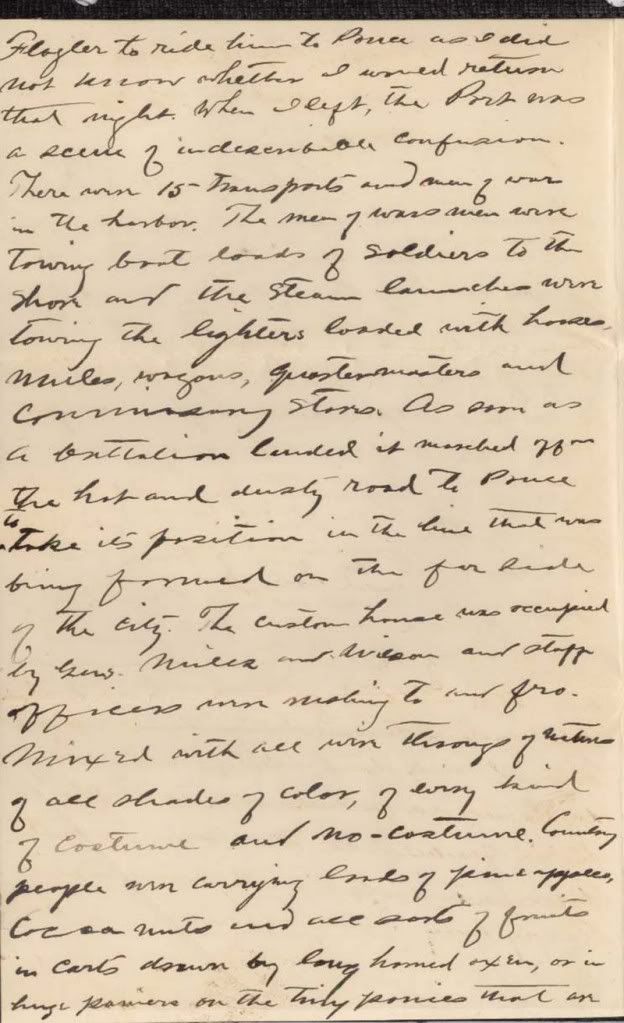 Flagler to ride him to Ponce as I did
not know whether I would return
that night. When I left, the Port was
a scene of indescribable confusion.
There were 15 transports and men of war
in the harbor. The men of wars men were
towing boat loads of soldiers to the
shore and the steam launches were
towing the lighters loaded with horses,
mules, wagons, quartermasters and
Commissary stores. As soon as
a battalion landed it marched off on
the hot and dusty road to Ponce
to take its position in the line that was
being formed on the far side
of the city. The custom house was occupied
by Gens. Miles and Wilson and staff
officers were rushing to and fro.
Mixed with all were throngs of natives
of all shades of color, of every kind
of costume and no-costume. Country
people were carrying loads of pine apples,
Cocoa nuts and all sorts of fruits
in carts drawn by long horned oxen, or in
huge paniers on the tiny ponies that are